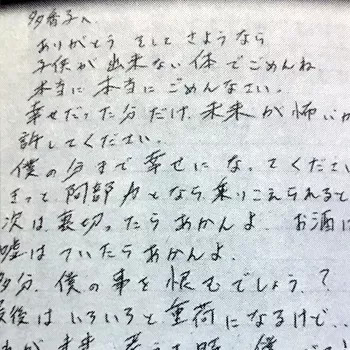 多香子へ
ありがとう そして さようなら
子供が出来ない体でごめんね
本当に本当にごめんなさい。
幸せだった分だけ、未来が怖いか
許してください。
僕の分まで幸せになってください
きっと阿部力となら乗りこえられると
次は、裏切ったらあかんよ。お酒に
嘘はついたらあかんよ。
多分、僕の事を恨むでしょう?
最後はいろいろと重荷になるけど..
未来 時 僕